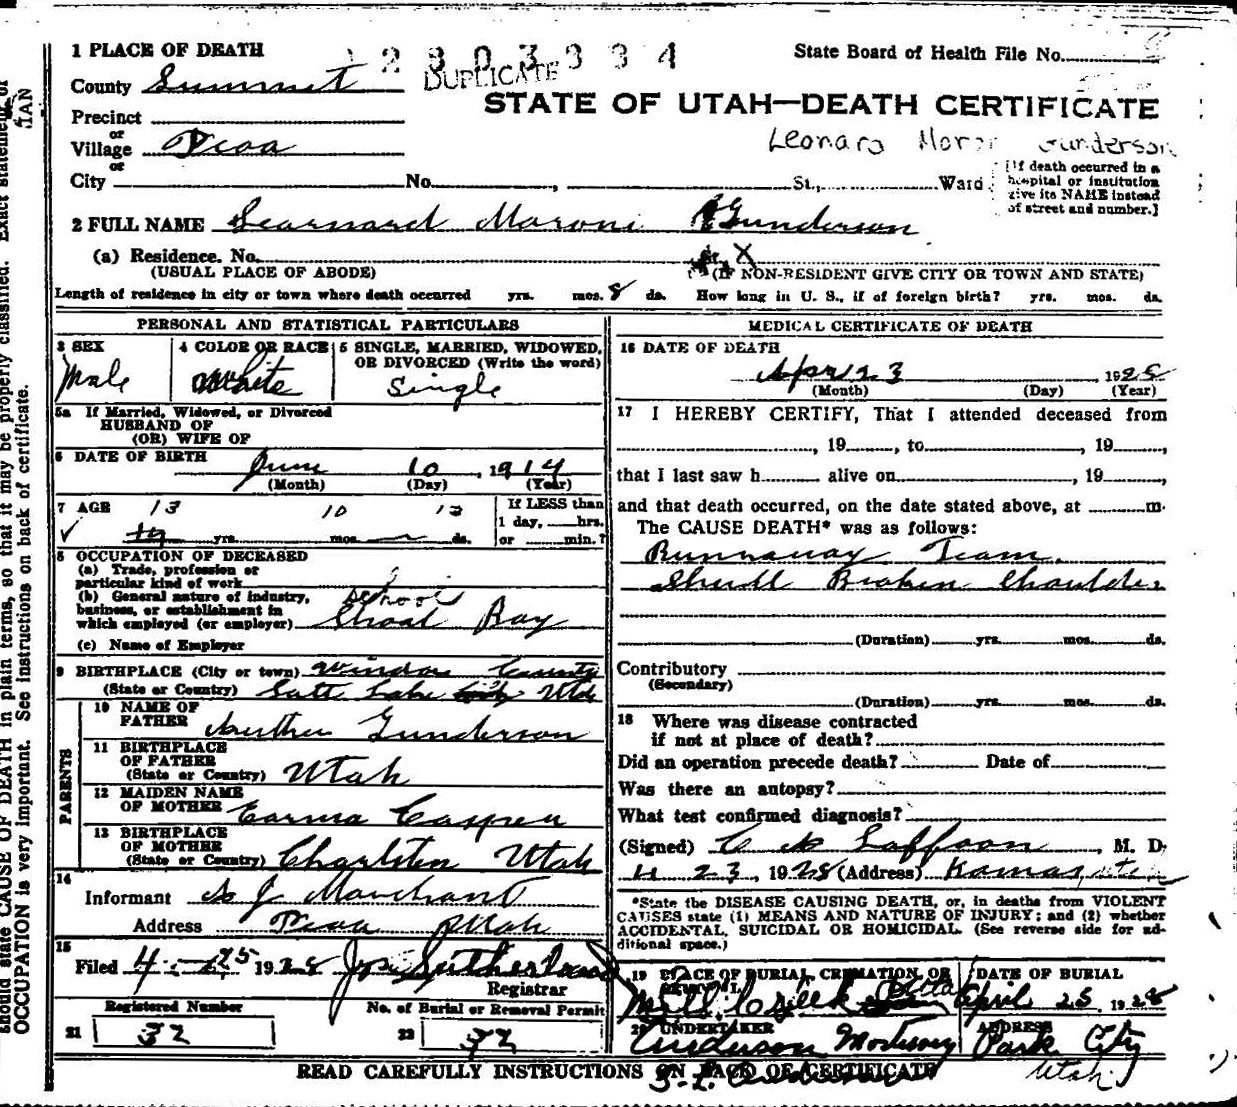 1 PLACE OF DEATH
2803334
DUPLICATE
State Board of Health File No.
County Summit
STATE OF UTAH—DEATH CERTIFICATE
Precinct
or
Village Peoa
or
Leonard Gunderson
City No. , St., Ward
[If death occurred in a
hospital or institution
give its NAME instead
of street and number.]
2 FULL NAME Learnard Maroni Gunderson
(a) Residence. No. St. X
(USUAL PLACE OF ABODE) (IF NON-RESIDENT GIVE CITY OR TOWN AND STATE)
Length of residence in city or town where death occurred yrs. mos. 8 ds. How long in U. S., if of foreign birth? yrs. mos. ds.
PERSONAL AND STATISTICAL PARTICULARS
3 SEX
Male
4 COLOR OR RACE
White
5 SINGLE, MARRIED, WIDOWED,
OR DIVORCED (Write the word)
Single
5a If Married, Widowed, or Divorced
HUSBAND OF
(OR) WIFE OF
6 DATE OF BIRTH
June 10, 1914
(Month) (Day) (Year)
7 AGE 13 10 13
yrs. mos. ds.
If LESS than
1 day, hrs.
or min.?
8 OCCUPATION OF DECEASED
(a) Trade, profession or
particular kind of work
(b) General nature of industry,
business, or establishment in
which employed (or employer) School Boy
(c) Name of Employer
9 BIRTHPLACE (City or town) County
(State or Country) Salt Lake Utah
PARENTS
10 NAME OF
FATHER Gunderson
11 BIRTHPLACE
OF FATHER
(State or Country) Utah
12 MAIDEN NAME
OF MOTHER Carma Casper
13 BIRTHPLACE
OF MOTHER
(State or Country) Charlston Utah
14
Informant J Marchant
Address Peoa Utah
15
Filed 4-25 1928 Jos Sutherland
Registrar
Registered Number
21 32
No. of Burial or Removal Permit
22 32
MEDICAL CERTIFICATE OF DEATH
16 DATE OF DEATH
Apr 23, 1928
(Month) (Day) (Year)
17 I HEREBY CERTIFY, That I attended deceased from
, 19 , to , 19 ,
that I last saw h alive on , 19 ,
and that death occurred, on the date stated above, at m.
The CAUSE DEATH* was as follows:
Runnaway Team.
Skull Broken Shoulder
(Duration) yrs. mos. ds.
Contributory
(Secondary)
(Duration) yrs. mos. ds.
18 Where was disease contracted
if not at place of death?
Did an operation precede death? Date of
Was there an autopsy?
What test confirmed diagnosis?
(Signed) Laffoon, M. D.
4 23, 1928 (Address) Kamas, Utah
*State the DISEASE CAUSING DEATH, or, in deaths from VIOLENT
CAUSES state (1) MEANS AND NATURE OF INJURY; and (2) whether
ACCIDENTAL, SUICIDAL OR HOMICIDAL. (See reverse side for ad-
ditional space.)
19 PLACE OF BURIAL, CREMATION, OR
REMOVAL
Mill Creek
DATE OF BURIAL
April 25, 1928
20 UNDERTAKER
Anderson Mortuary
ADDRESS
Park City
Utah
READ CAREFULLY INSTRUCTIONS ON BACK OF CERTIFICATE
should state CAUSE OF DEATH in plain terms, so that it may be properly classified. Exact statement of
OCCUPATION is very important. See instructions on back of certificate.
JAN